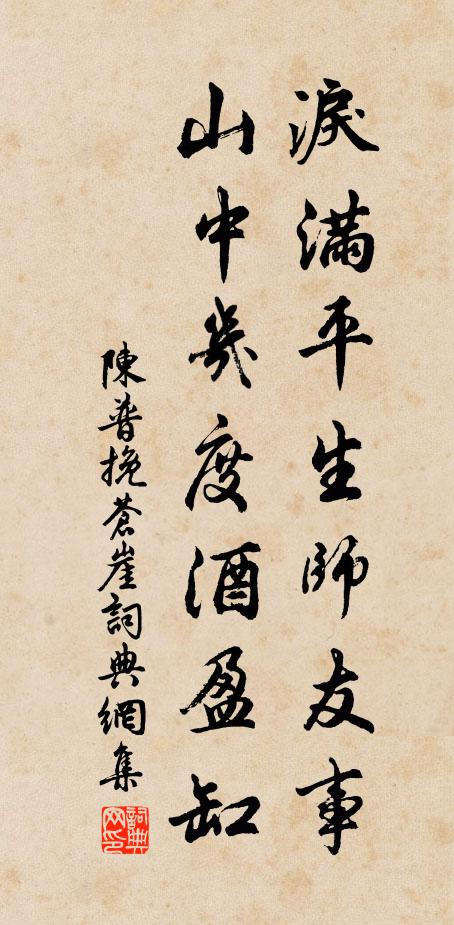 淚滿平生師友事
山中幾度酒盈缸
陳普挽蒼崖詞典網集
詞典網印